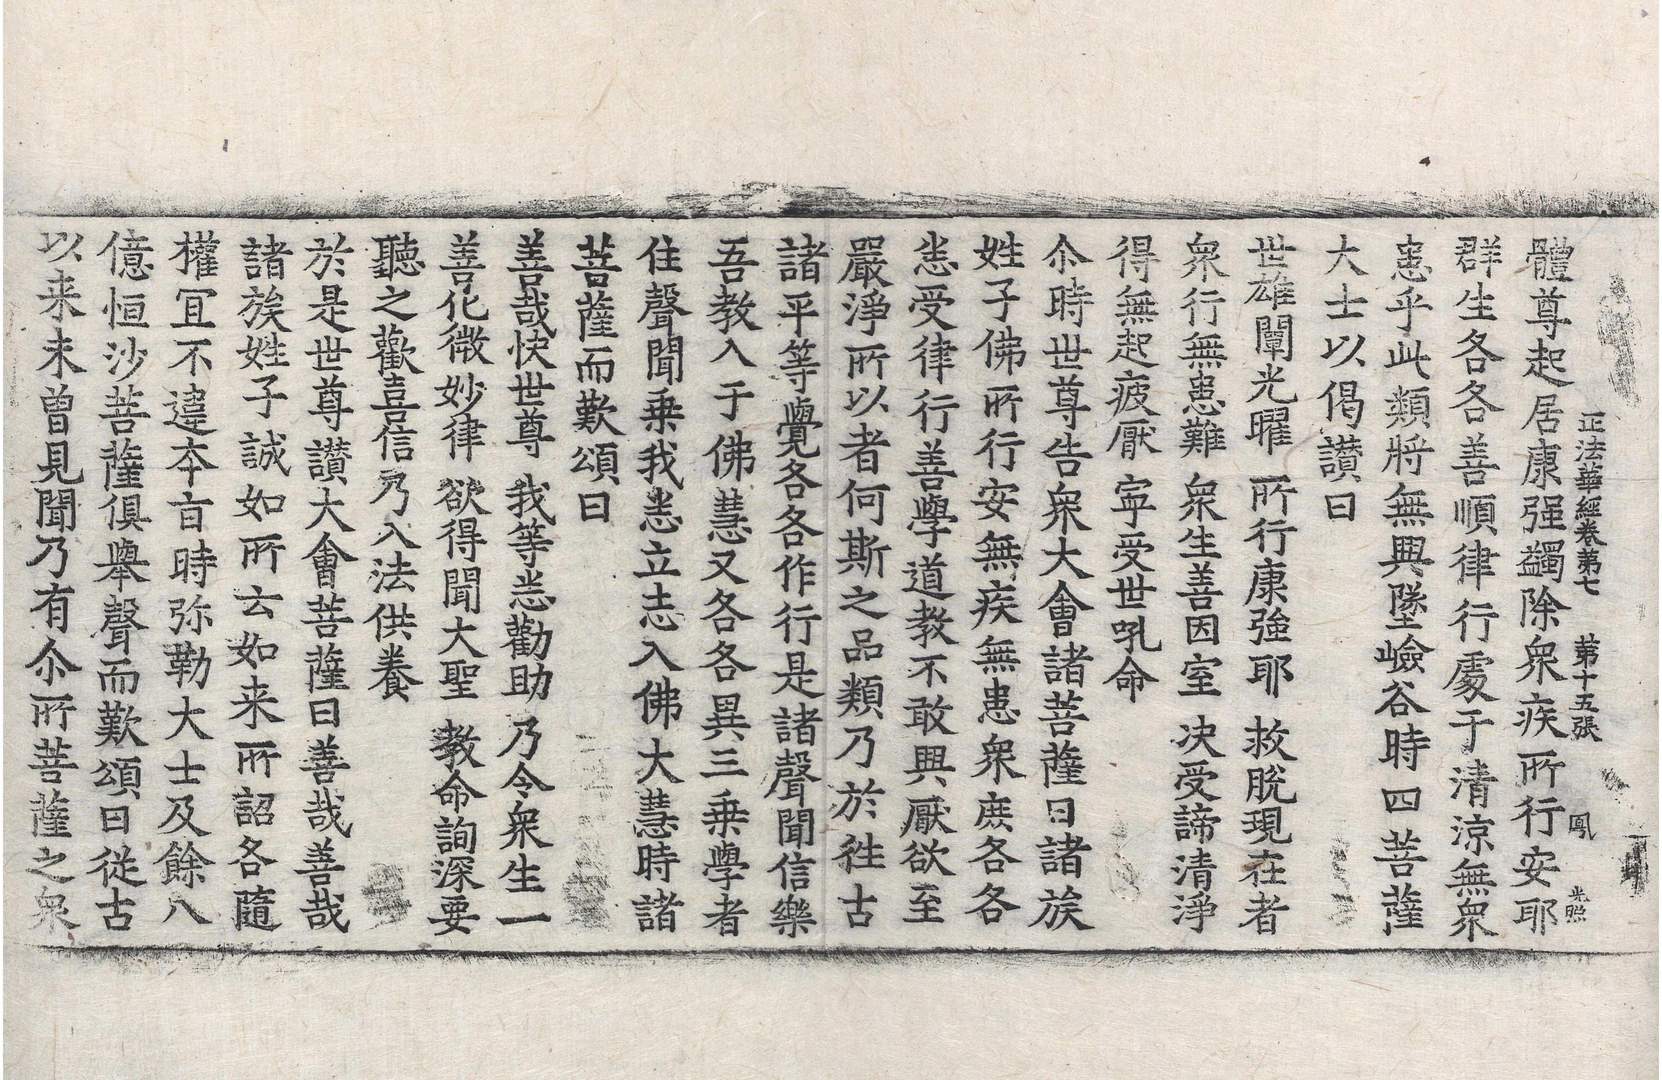 正法華經卷第七 第十五張 鳳 光照
體尊起居康强蠲除衆疾所行安耶
群生各各善順律行處于清涼無衆
患乎此類將無興墜嶮谷時四菩薩
大士以偈讃曰
世雄闡光曜 所行康強耶 救脫現在者
衆行無患難 衆生善因室 决受諦清淨
得無起疲厭 寜受世吼命
尒時世尊告衆大會諸菩薩曰諸族
姓子佛所行安無疾無患衆庶各各
悉受律行善學道教不敢興厭欲至
嚴淨所以者何斯之品類乃於徃古
諸平等覺各各作行是諸聲聞信樂
吾教入于佛慧又各各異三乗學者
住聲聞乗我悉立志入佛大慧時諸
菩薩而歎頌曰
善哉快世尊 我等悉勸助 乃令衆生一
善化微妙律 欲得聞大聖 教命詢深要
聽之歡喜信 乃入法供養
於是世尊讃大會菩薩曰善哉善哉
諸族姓子誠如所云如来所詔各隨
權冝不違夲㫖時弥勒大士及餘八
億恒沙菩薩俱舉聲而歎頌曰從古
以来未曽見聞乃有尒所菩薩之衆